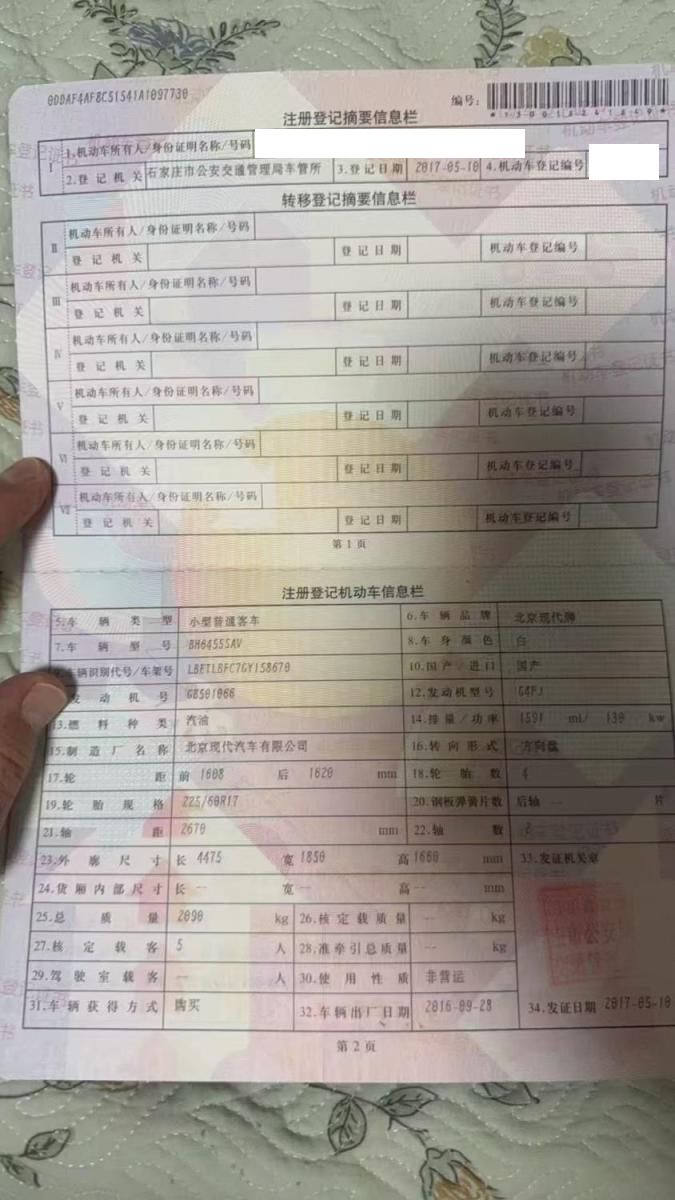 0DDAF4AF8C51541A1097730
编号：
*130018241869*
注册登记摘要信息栏
I 1.机动车所有人/身份证明名称/号码
2.登记机关 石家庄市公安交通管理局车管所 3.登记日期 2017-05-10 4.机动车登记编号
转移登记摘要信息栏
II 机动车所有人/身份证明名称/号码
登记机关 登记日期 机动车登记编号
III 机动车所有人/身份证明名称/号码
登记机关 登记日期 机动车登记编号
IV 机动车所有人/身份证明名称/号码
登记机关 登记日期 机动车登记编号
V 机动车所有人/身份证明名称/号码
登记机关 登记日期 机动车登记编号
VI 机动车所有人/身份证明名称/号码
登记机关 登记日期 机动车登记编号
VII 机动车所有人/身份证明名称/号码
登记机关 登记日期 机动车登记编号
第1页
注册登记机动车信息栏
5.车辆类型 小型普通客车 6.车辆品牌 北京现代牌
7.车辆型号 BH6455SAV 8.车身颜色 白
车辆识别代号/车架号 LBETLBFC7GY158670 10.国产/进口 国产
发动机号 GB501066 12.发动机型号 G4FJ
13.燃料种类 汽油 14.排量/功率 1591 ml/ 130 kw
15.制造厂名称 北京现代汽车有限公司 16.转向形式 方向盘
17.轮距 前 1608 后 1620 mm 18.轮胎数 4
19.轮胎规格 225/60R17 20.钢板弹簧片数 后轴 -- 片
21.轴距 2670 mm 22.轴数 2
23.外廓尺寸 长 4475 宽 1850 高 1660 mm 33.发证机关章
24.货厢内部尺寸 长 -- 宽 -- 高 -- mm
25.总质量 2090 kg 26.核定载质量 -- kg
27.核定载客 5 人 28.准牵引总质量 -- kg
29.驾驶室载客 -- 人 30.使用性质 非营运
31.车辆获得方式 购买 32.车辆出厂日期 2016-09-28 34.发证日期 2017-05-10
第2页